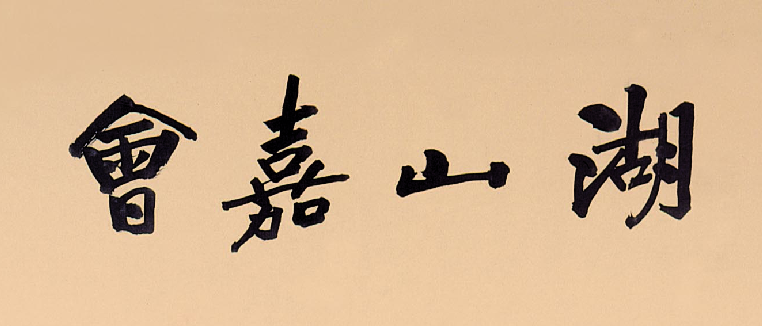 湖山嘉會